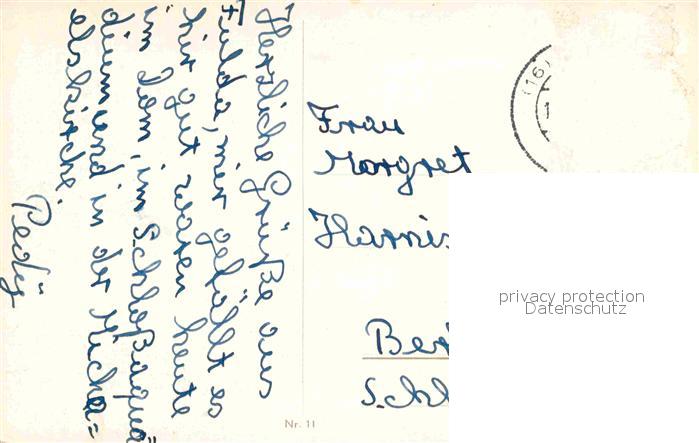 Herzliche Grüße aus
Fulda, mir gefällt es
hir gut waren heute
im Dom, im Schloßaqua=
dium und in der Micha=
elskirche.
Frau
Margret
Harnis
Ber
Schl
(16)
Nr. 11
privacy protection
Datenschutz